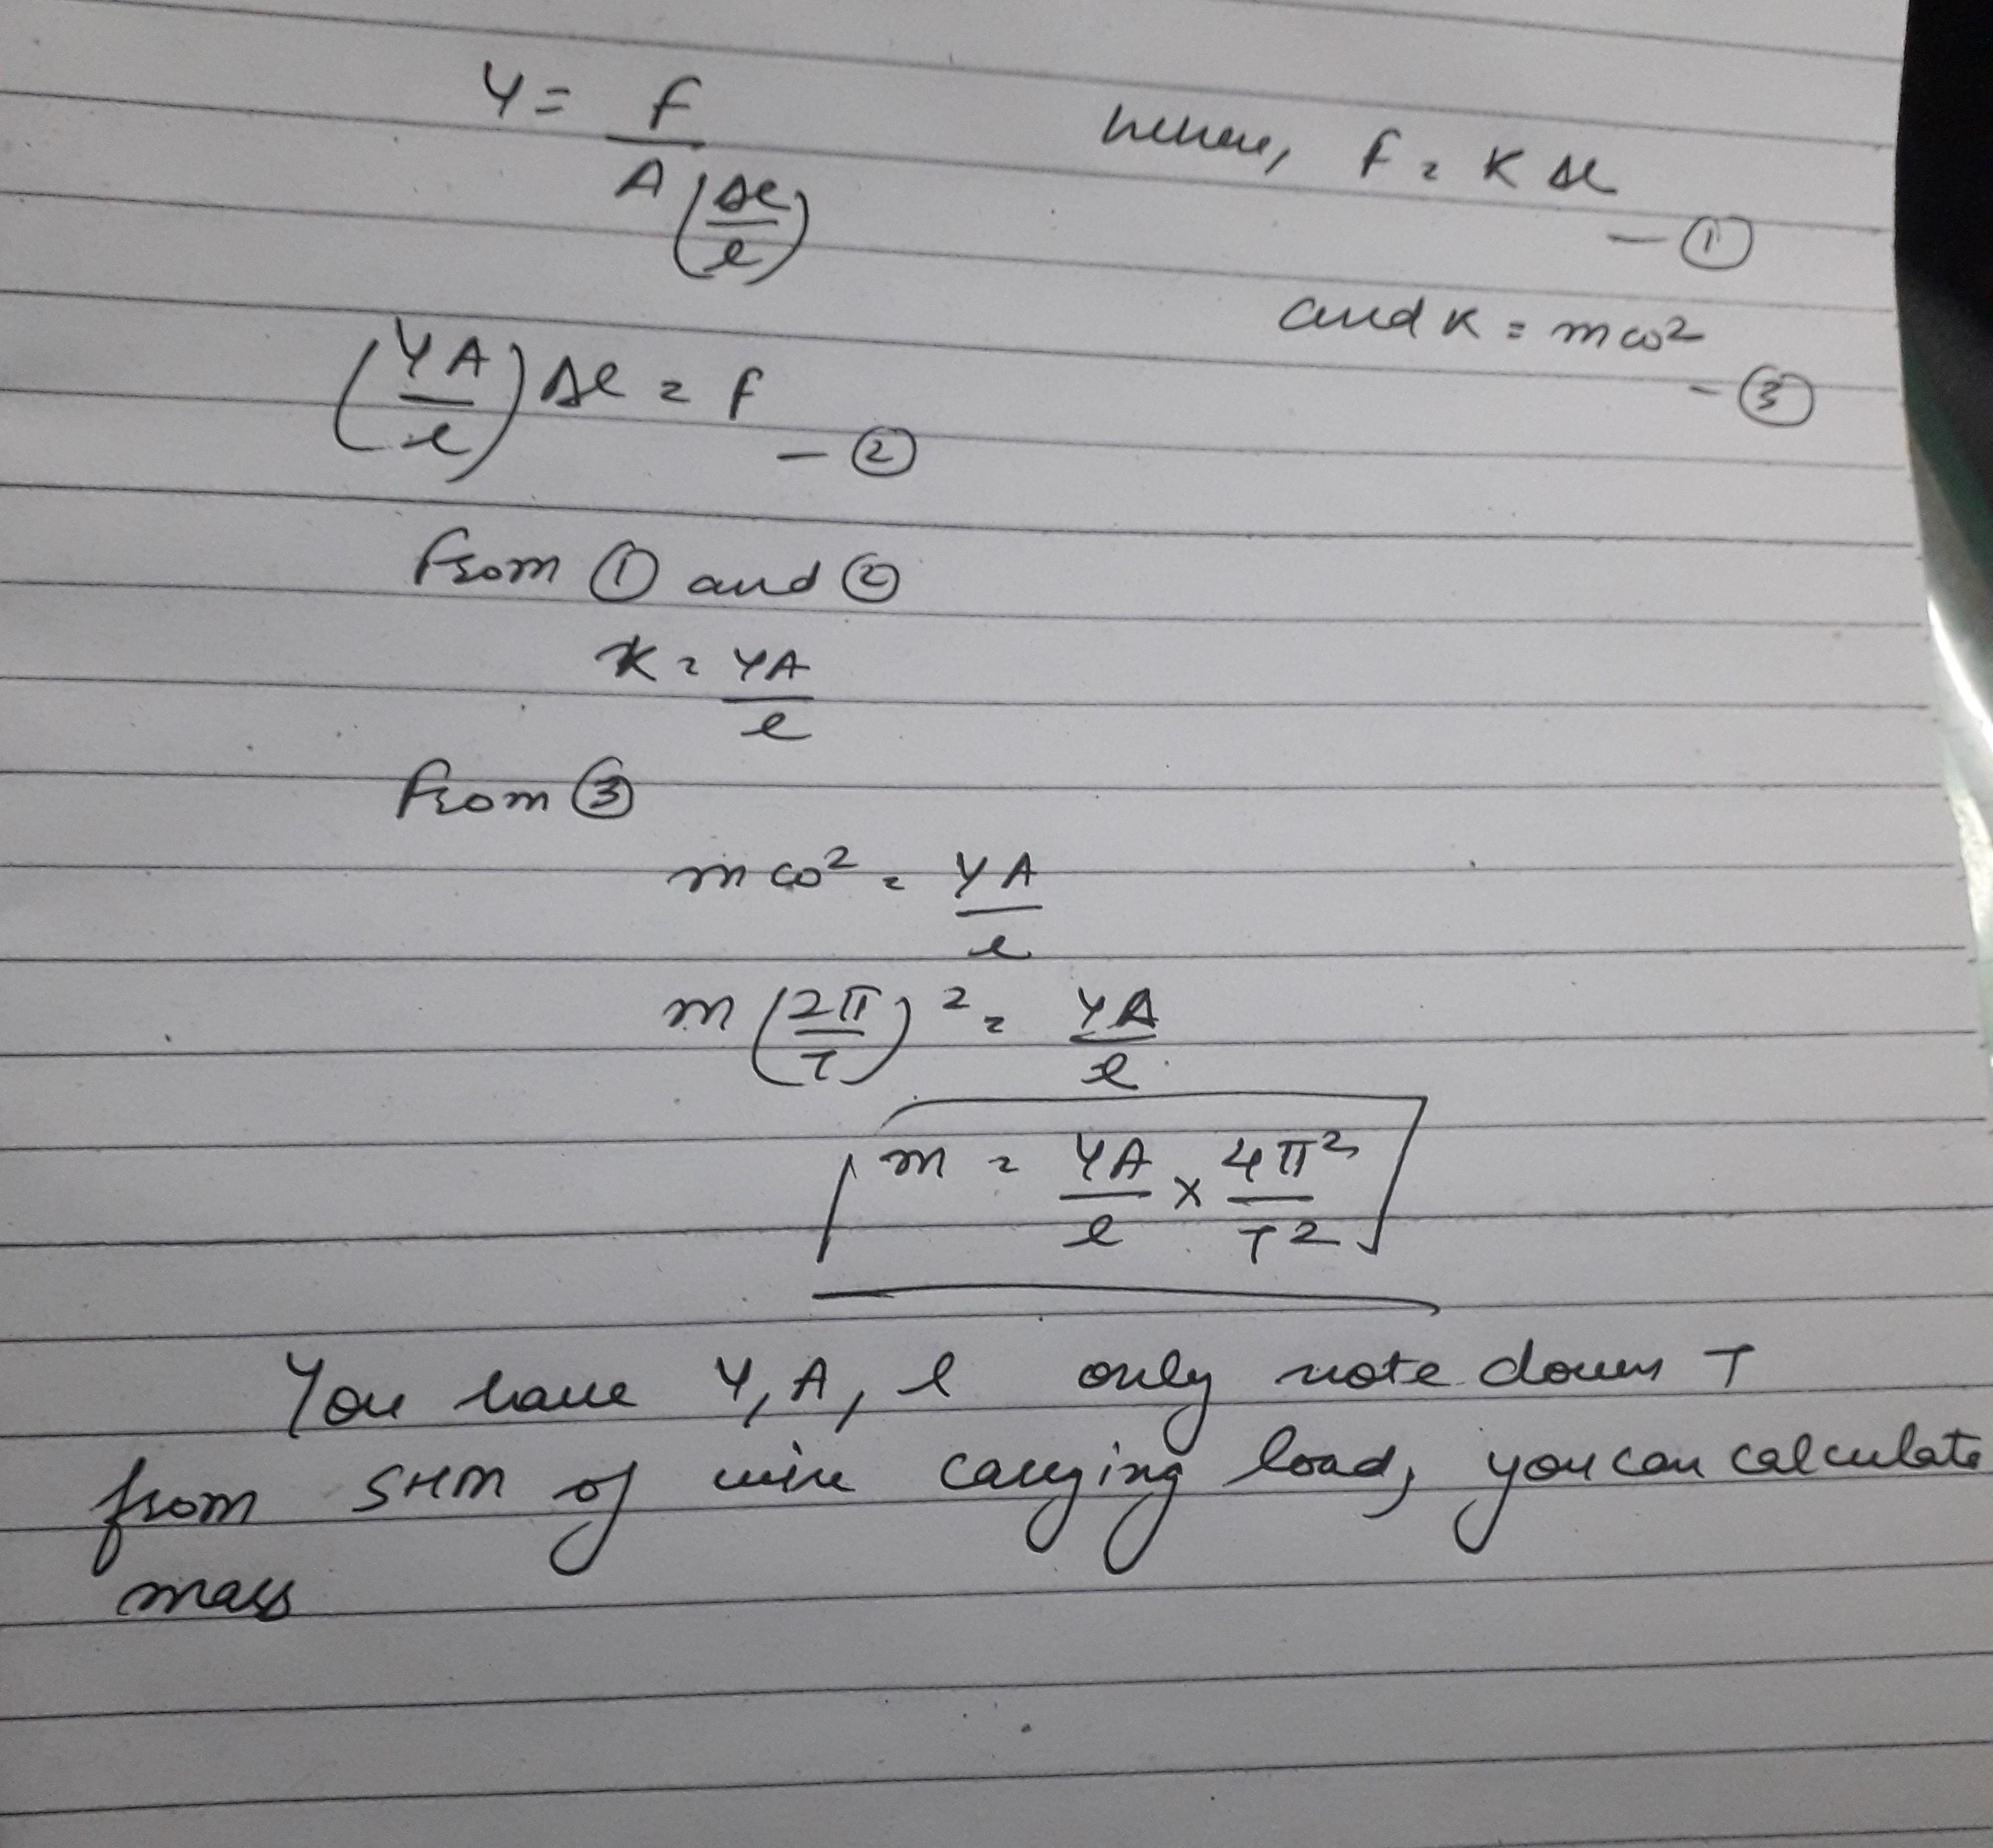 Y = F / A (Δl/l)
hence, F = K Δl — ①
and K = mω² — ③
(YA/l) Δl = F — ②
From ① and ②
K = YA/l
From ③
mω² = YA/l
m (2π/T)² = YA/l
m = YA/l × 4π²/T²
You have Y, A, l only note down T
from SHM of wire carying load, you can calculate
mass